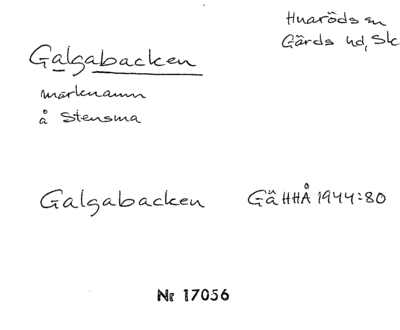 Huaröds sn
Gärds hd, Sk
Galgabacken
marknamn
å Stensma
Galgabacken GäHHÅ 1944:80
Nr 17056